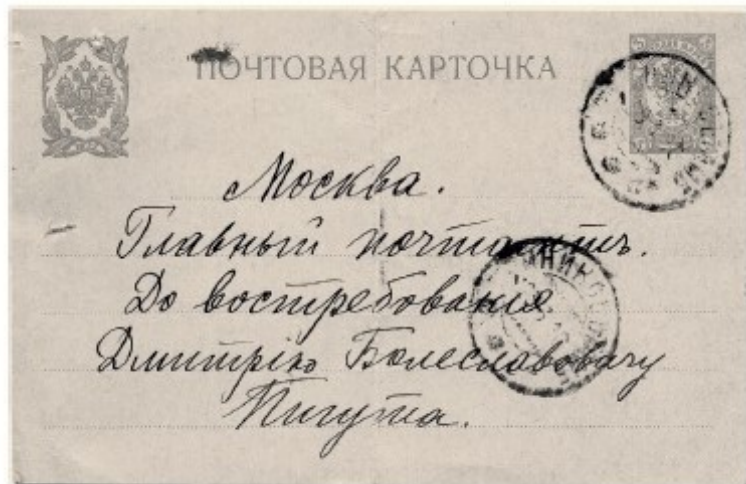 ПОЧТОВАЯ КАРТОЧКА
Москва.
Главный почтамтъ.
До востребованія
Дмитрію Болеславовичу
Пигута.